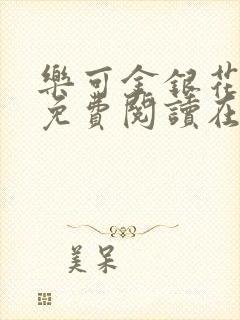 樂可金銀花
免費閱讀在
美呆